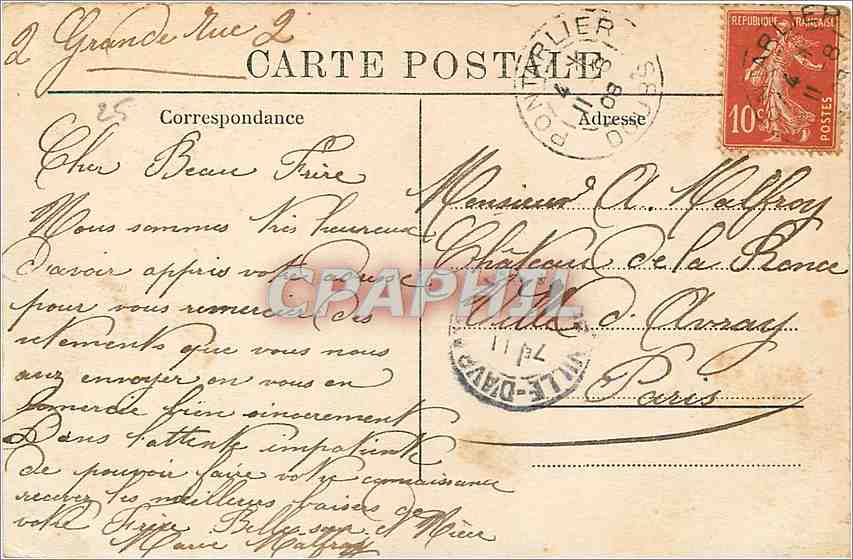 2 Grande Rue 2
CARTE POSTALE
PONTARLIER
DOUBS
REPUBLIQUE FRANÇAISE
10c POSTES
25
Correspondance
Cher Beau Frère
Nous sommes très heureux
d'avoir appris votre adresse
pour vous remercier des
vetements que vous nous
avez envoyer on vous en
remercie bien sincerement
Dans l'attente impatiente
de pouvoir faire votre connaissance
recever les meilleurs baisers de
votre Frère Belle sœur et Nièce
Marie Malfroy
Adresse
Monsieur A. Malfroy
Château de la Ronce
Ville d'Avray
Paris
VILLE-D'AVRAY
CPAPHIL